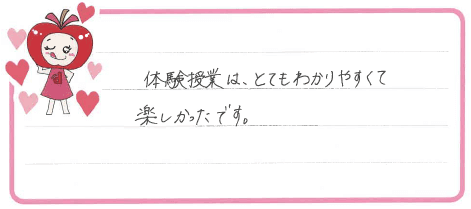 体験授業は、とてもわかりやすくて
楽しかったです。